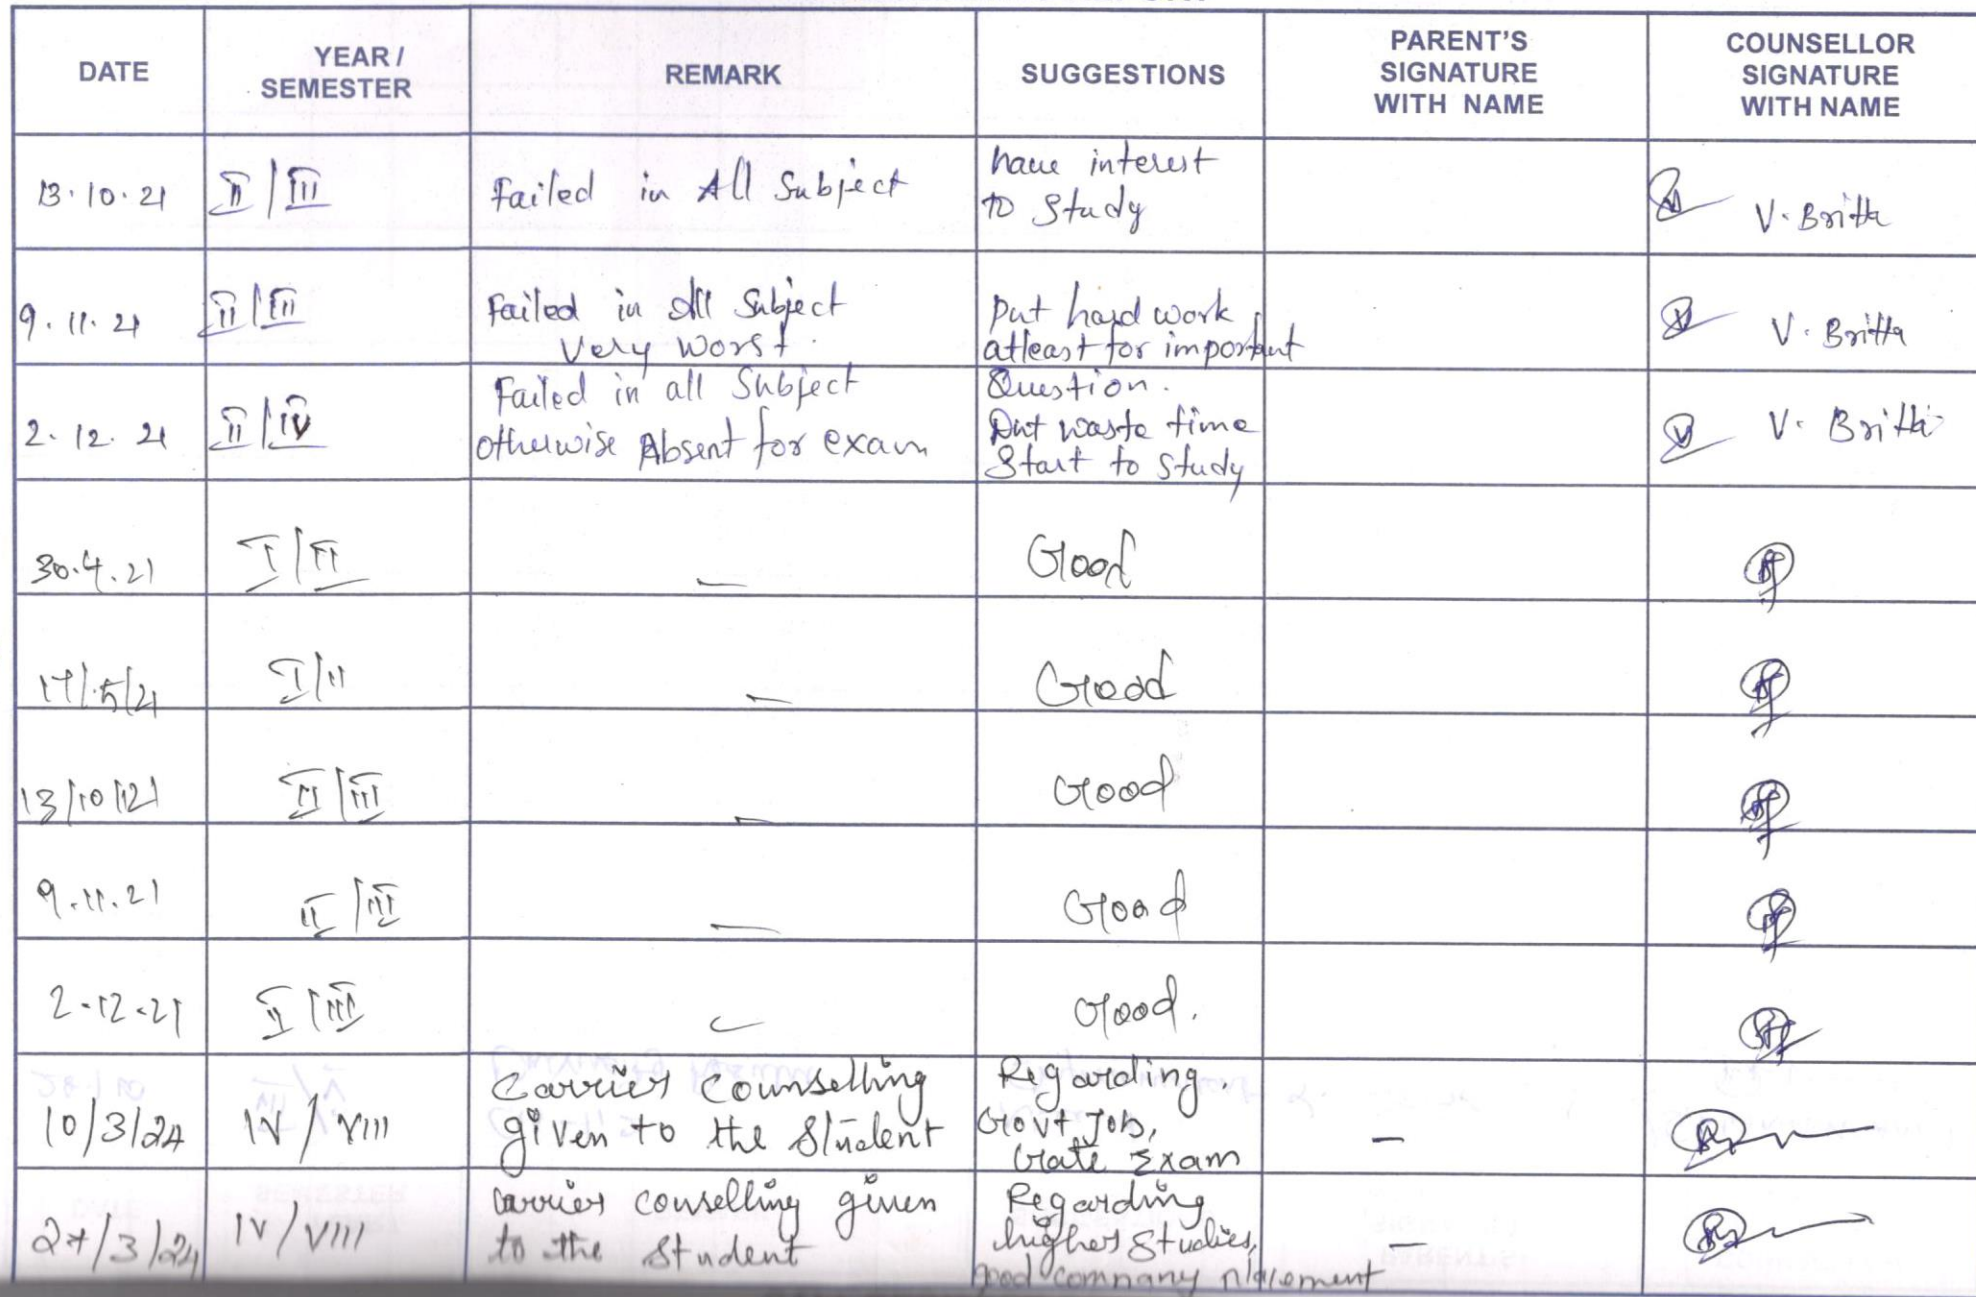 DATE
YEAR /
SEMESTER
REMARK
SUGGESTIONS
PARENT'S
SIGNATURE
WITH NAME
COUNSELLOR
SIGNATURE
WITH NAME
13.10.21
II/III
Failed in All Subject
have interest
to Study
V. Britta
9.11.21
II/III
Failed in All Subject
Very Worst.
Put hard work
atleast for important
Question.
V. Britta
2.12.21
II/IV
Failed in all Subject
otherwise Absent for exam
Dnt waste time
Start to study
V. Britta
30.4.21
I/II
—
Good
17/5/21
I/II
—
Good
13/10/21
II/III
—
Good
9.11.21
II/III
—
Good
2-12-21
II/III
Good.
10/3/24
IV/VIII
Carrier Counselling
given to the Student
Regarding.
Govt Job,
Gate Exam
—
27/3/24
IV/VIII
carrier couselling given
to the Student
Regarding
higher Studies,
good company placement
—